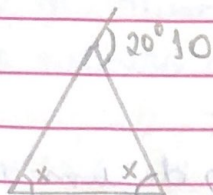 20° 10
x x